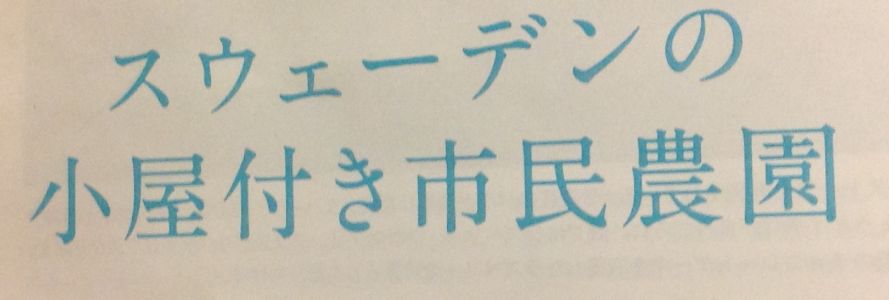 スウェーデンの
小屋付き市民農園